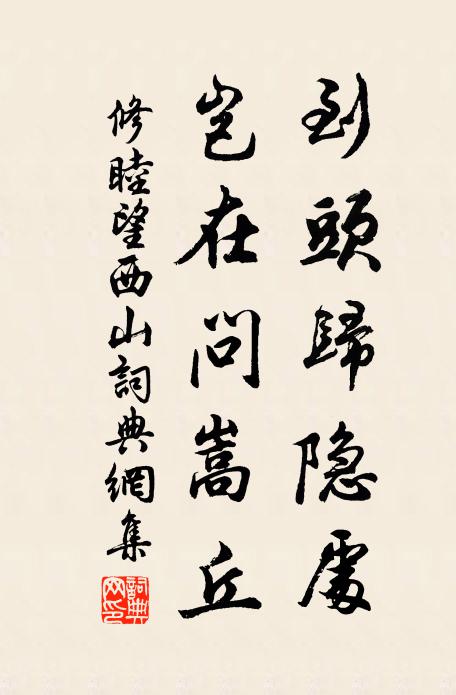 到頭歸隐處
岂在問嵩丘
修睦望西山詞典網集
詞典网印